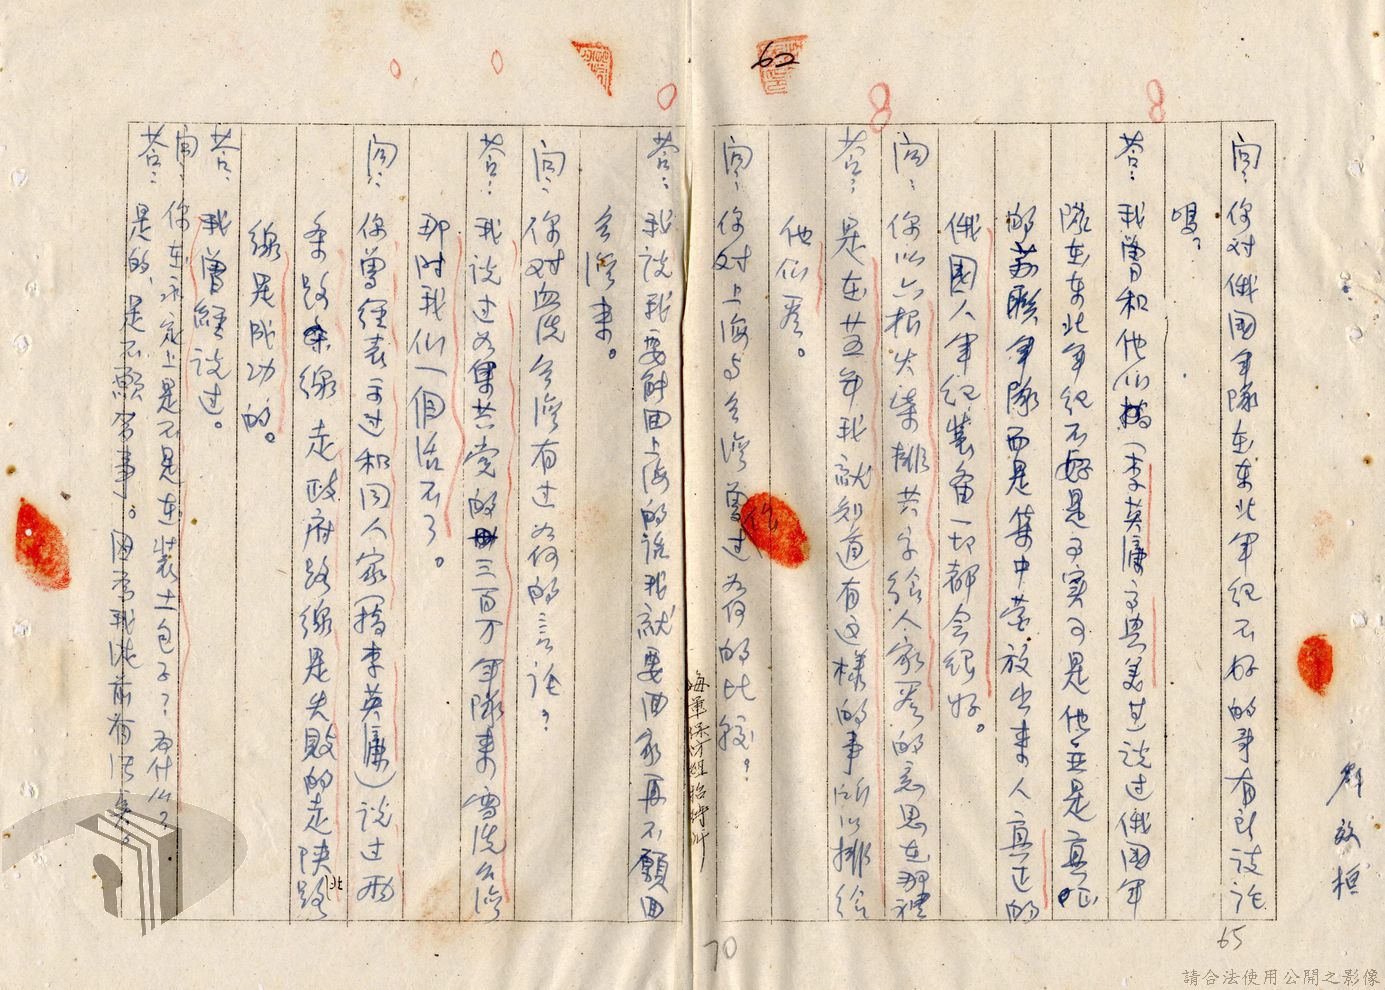 62
問：你对俄國軍隊在東北軍紀不好的事有那談話
嗎？
答：我曾和他们（李英庸高典美甚說过俄國軍
隊在东北军纪不好是事実可是他並是真正
的苏聯軍隊而是集中营放出来人真正的
俄國人军纪装备一切都会很好。
問：你以六根火柴排共字给人家看的意思在那裡
答：是在廿五年我就知道有这樣的事所以排给
他们看。
問：你对上海与台湾曾作过为何的比較？
答：我說我要解回上海的話我就要回家再不願回
台湾来。
問：你对血洗台湾有过为何的言论？
答：我说过为果共党的三百万軍隊来雪洗台湾
那时我们一個活不了。
問：你曾经表示过和同人家（指李英庸）说过兩
条路線走政府路線是失敗的走陕北路
線是成功的。
答：我曾經说过。
問：你在永定上是不是在装土包子？为什么？
答：是的，是不願劳事。因为我從前有
海軍保防組招待所
65
70
請合法使用公開之影像